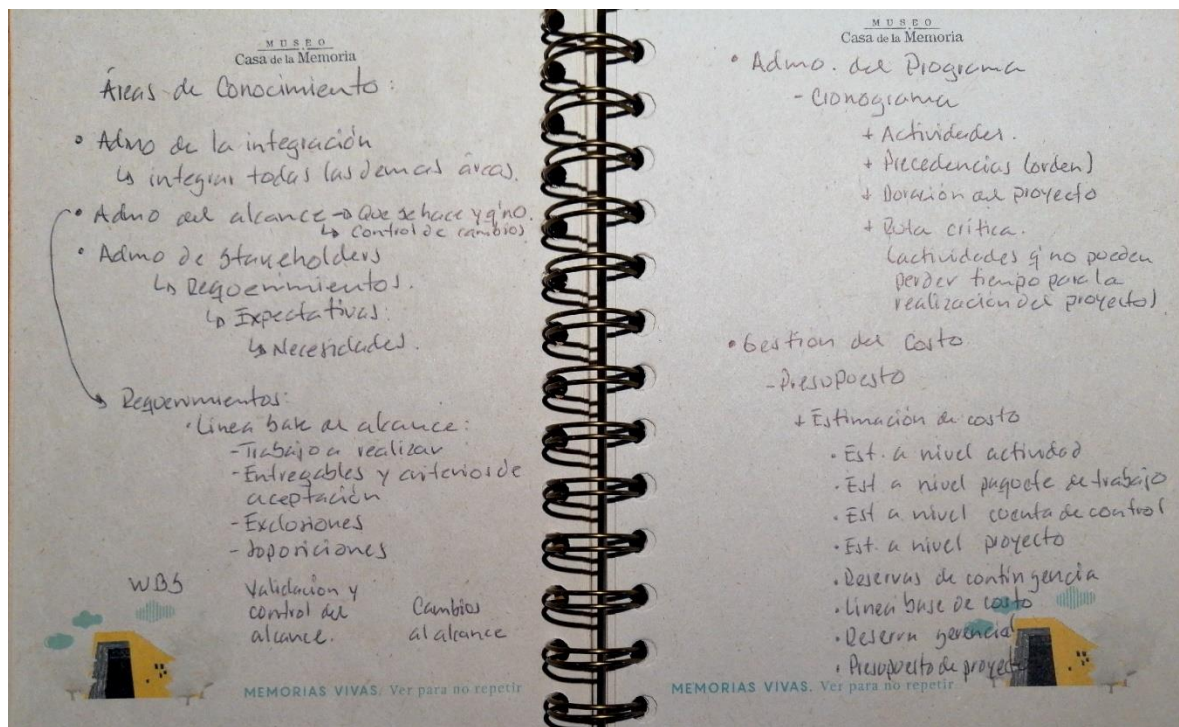 MUSEO
Casa de la Memoria
Áreas de Conocimiento:
• Admo de la integración
↳ integrar todas las demas áreas.
• Admo del alcance → Que se hace y q' no.
↳ Control de cambios
• Admo de Stakeholders
↳ Requerimientos.
↳ Expectativas.
↳ Necesidades.
Requerimientos:
• Línea base de alcance:
- Trabajo a realizar
- Entregables y criterios de
aceptación
- Exclusiones
- Suposiciones
WBS
Validacion y
control del
alcance.
Cambios
al alcance
MEMORIAS VIVAS. Ver para no repetir
MUSEO
Casa de la Memoria
• Admo. del Programa
- Cronograma
+ Actividades.
+ Precedencias (orden)
+ Duración del proyecto
+ Ruta crítica.
(actividades q' no pueden
perder tiempo para la
realización del proyecto)
• Gestion del Costo
- Presupuesto
+ Estimación de costo
• Est. a nivel actividad
• Est a nivel paquete de trabajo
• Est a nivel cuenta de control
• Est. a nivel proyecto
• Reservas de contingencia
• Linea base de costo
• Reserva gerencial
• Presupuesto de proyecto
MEMORIAS VIVAS. Ver para no repetir